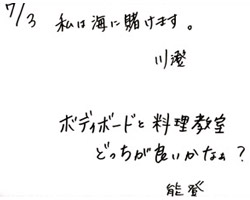 7/3 私は海に賭けます。
川澄
ボディボードと料理教室
どっちが良いかなぁ？
能登